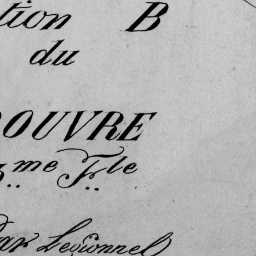 tion B
du
OUVRE
me Fle
ar Lecionnel